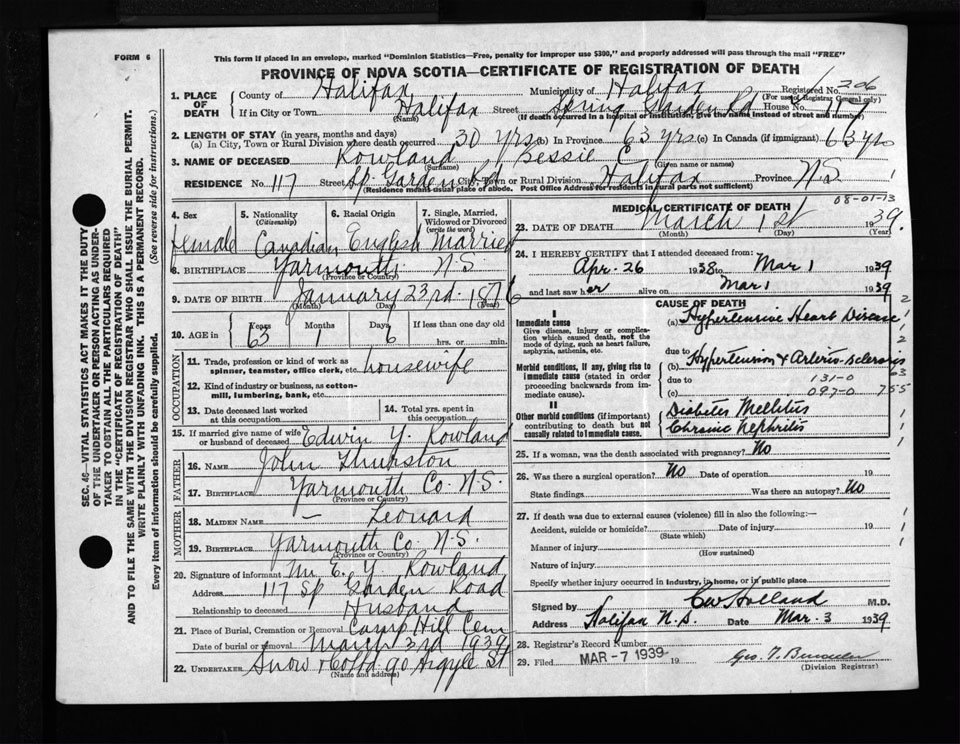 FORM 6
This form if placed in an envelope, marked "Dominion Statistics—Free, penalty for improper use $300," and properly addressed will pass through the mail "FREE"
PROVINCE OF NOVA SCOTIA—CERTIFICATE OF REGISTRATION OF DEATH
1. PLACE OF DEATH
County of Halifax Municipality of Halifax Registered No. 206
(For use of Registrar General only)
If in City or Town Halifax Street Spring Garden Rd House No. 117
(Name) (If death occurred in a hospital or institution, give the name instead of street and number)
2. LENGTH OF STAY (in years, months and days)
(a) In City, Town or Rural Division where death occurred 30 yrs (b) In Province 63 yrs (c) In Canada (if immigrant) 63 yrs
3. NAME OF DECEASED Rowland Bessie C
(Surname) (Given name or names)
RESIDENCE No. 117 Street Sp. Garden Rd City, Town or Rural Division Halifax Province N.S.
(Residence means usual place of abode. Post Office Address for residents in rural parts not sufficient)
4. Sex female
5. Nationality (Citizenship) Canadian
6. Racial Origin English
7. Single, Married, Widowed or Divorced (write the word) Married
8. BIRTHPLACE Yarmouth N.S.
(Province or Country)
9. DATE OF BIRTH January 23rd 1876
(Month) (Day) (Year)
10. AGE in Years 63 Months 1 Days 6 If less than one day old
hrs. or min.
OCCUPATION
11. Trade, profession or kind of work as spinner, teamster, office clerk, etc. housewife
12. Kind of industry or business, as cotton-mill, lumbering, bank, etc.
13. Date deceased last worked at this occupation
14. Total yrs. spent in this occupation
15. If married give name of wife or husband of deceased Edwin Y. Rowland
FATHER
16. NAME John Thurston
17. BIRTHPLACE Yarmouth Co. N.S.
(Province or Country)
MOTHER
18. MAIDEN NAME — Leonard
19. BIRTHPLACE Yarmouth Co. N.S.
(Province or Country)
20. Signature of informant Mr E. Y. Rowland
Address 117 Sp Garden Road
Relationship to deceased Husband
21. Place of Burial, Cremation or Removal Camp Hill Cem
Date of burial or removal March 3rd 1939
22. UNDERTAKER Snow & Co Ltd 90 Argyle St
(Name and address)
MEDICAL CERTIFICATE OF DEATH
08-01-13
23. DATE OF DEATH March 1st 1939.
(Month) (Day) (Year)
24. I HEREBY CERTIFY that I attended deceased from:
Apr. 26 1938 to Mar 1 1939
and last saw her alive on Mar 1 1939
CAUSE OF DEATH
I
Immediate cause
Give disease, injury or complication which caused death, not the mode of dying, such as heart failure, asphyxia, asthenia, etc.
(a) Hypertensive Heart Disease
due to
Morbid conditions, if any, giving rise to immediate cause (stated in order proceeding backwards from immediate cause).
(b) Hypertension & Arterio-sclerosis
due to 131-0
(c) 097-0
II
Other morbid conditions (if important) contributing to death but not causally related to immediate cause.
Diabetes Mellitus
Chronic Nephritis
25. If a woman, was the death associated with pregnancy? No
26. Was there a surgical operation? No Date of operation 19
State findings Was there an autopsy? No
27. If death was due to external causes (violence) fill in also the following:—
Accident, suicide or homicide? Date of injury 19
(State which)
Manner of injury
(How sustained)
Nature of injury
Specify whether injury occurred in industry, in home, or in public place
Signed by C W Holland M.D.
Address Halifax N.S. Date Mar. 3 1939
28. Registrar's Record Number
29. Filed MAR -7 1939 19
(Division Registrar)
SEC. 46—VITAL STATISTICS ACT MAKES IT THE DUTY
OF THE UNDERTAKER OR PERSON ACTING AS UNDER-
TAKER TO OBTAIN ALL THE PARTICULARS REQUIRED
IN THE "CERTIFICATE OF REGISTRATION OF DEATH"
AND TO FILE THE SAME WITH THE DIVISION REGISTRAR WHO SHALL ISSUE THE BURIAL PERMIT.
WRITE PLAINLY WITH UNFADING INK. THIS IS A PERMANENT RECORD.
Every item of information should be carefully supplied. (See reverse side for instructions.)